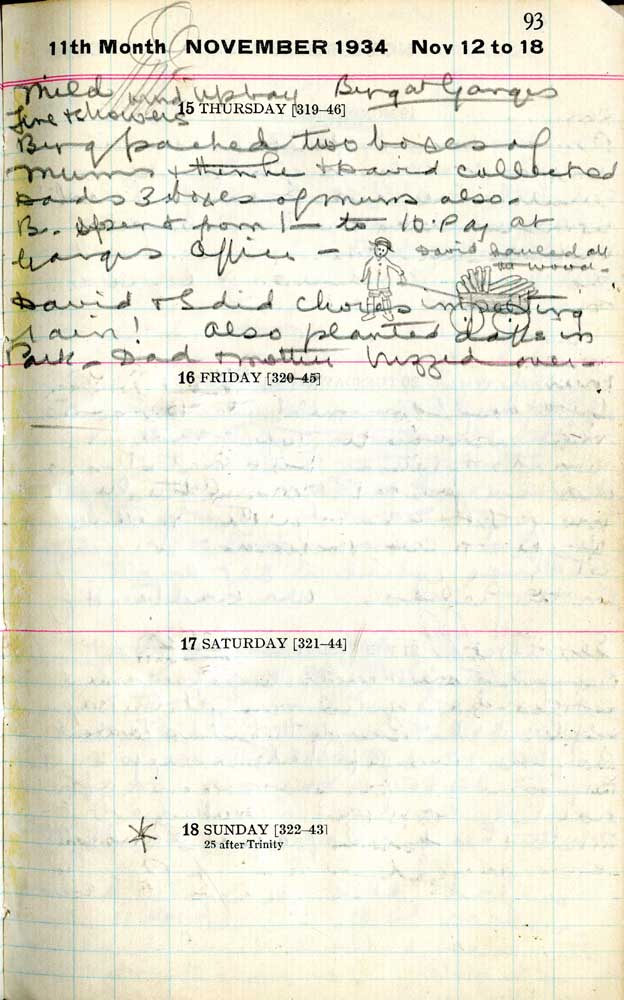 93
11th Month NOVEMBER 1934 Nov 12 to 18
Mild wind up bay Berg at Ganges
Fine & showers
15 THURSDAY [319–46]
Berg packed two boxes of
mums & then he & David collected
Dads 3 boxes of mums also.
B. spent from 1 – to 10. P.M. at
Ganges Office –
David hauled all
the wood –
David & I did chores in pelting
rain! Also planted daffs in
Park – Dad & mother buzzed over –
16 FRIDAY [320–45]
17 SATURDAY [321–44]
18 SUNDAY [322–43]
25 after Trinity